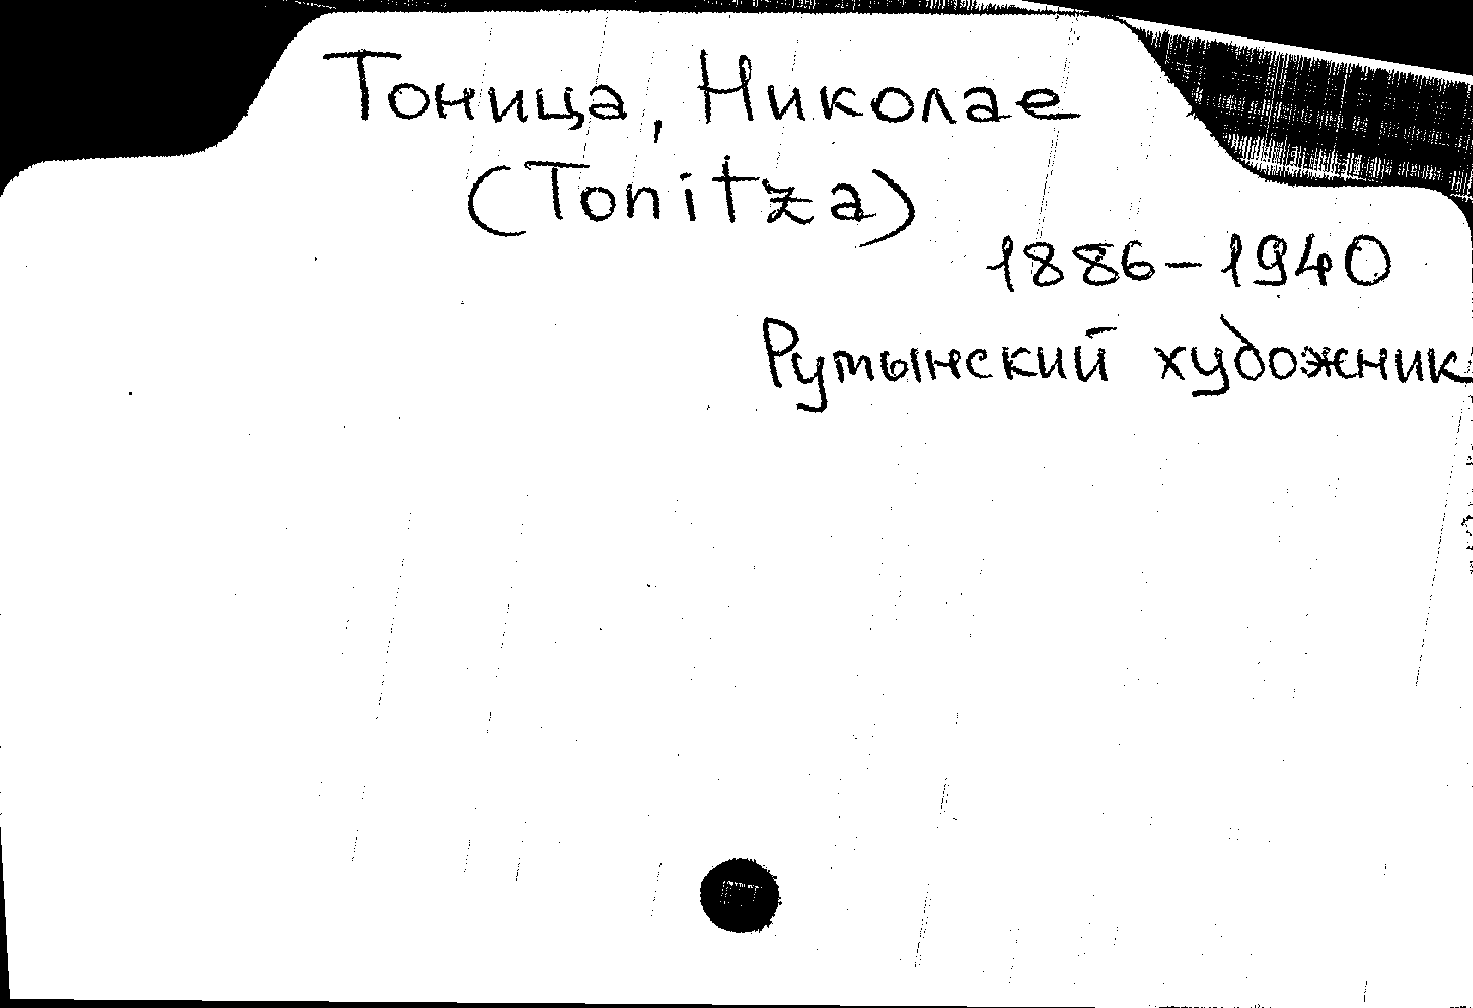 Тоница, Николае
(Tonitza)
1886-1940
Румынский художник